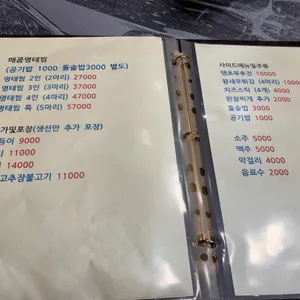 매콤명태찜
(공기밥 1000 돌솥밥3000 별도)
명태찜 2인 (2마리) 27000
명태찜 3인 (3마리) 37000
명태찜 4인 (4마리) 47000
명태찜 특 (5마리) 57000
가및포장(생선만 추가 포장)
등어 9000
11000
14000
고추장불고기 11000
사이드메뉴및주류
10000
왕새우튀김 (4마리) 10000
치즈스틱 (4개) 4000
된장찌개 추가 2000
돌솥밥 3000
공기밥 1000
소주 5000
맥주 5000
막걸리 4000
음료수 2000